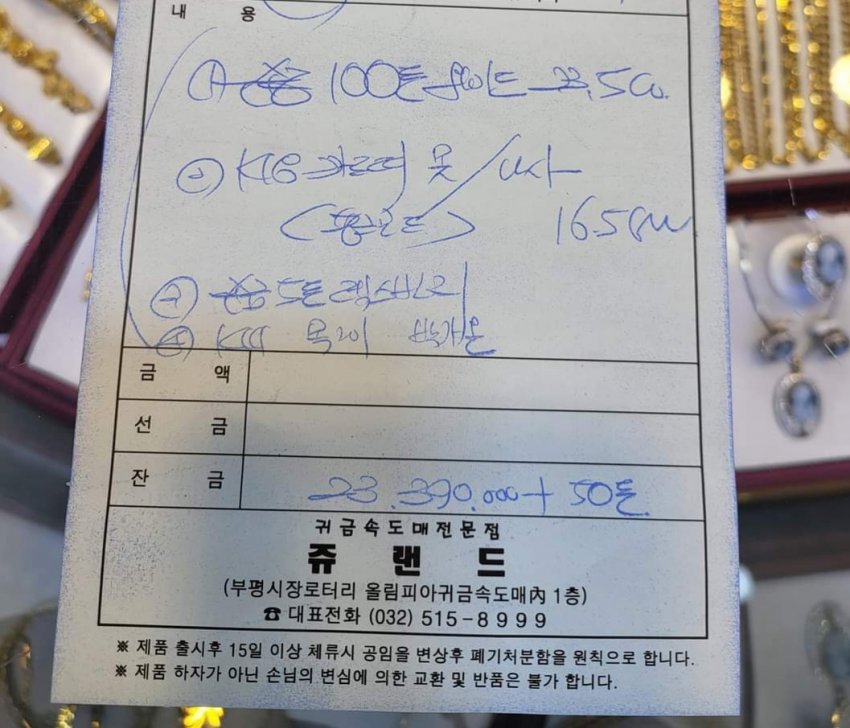 내 용
① 순금 100돈 포인트 22.5cm
② K18 까르띠 못/나사
(풍금도) 16.5cm
③ 순금 5돈
④ 목걸이
금 액
선 금
잔 금 23.390.000+50돈
귀금속도매전문점
쥬 랜 드
(부평시장로터리 올림피아귀금속도매內 1층)
☎ 대표전화 (032) 515-8999
※ 제품 출시후 15일 이상 체류시 공임을 변상후 폐기처분함을 원칙으로 합니다.
※ 제품 하자가 아닌 손님의 변심에 의한 교환 및 반품은 불가 합니다.